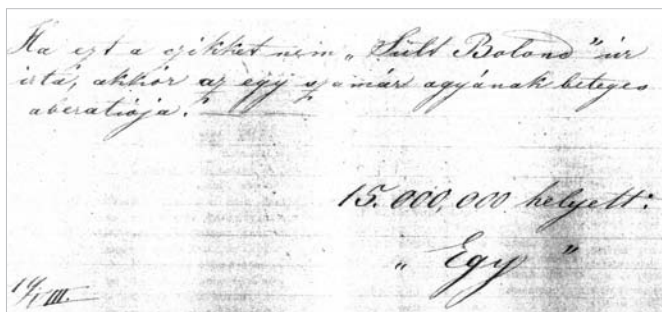 Ha ezt a czikket nem „Sült Bolond" úr
irta, akkor az egy szamár agyának beteges
aberatiója.
15.000,000 helyett:
„ Egy "